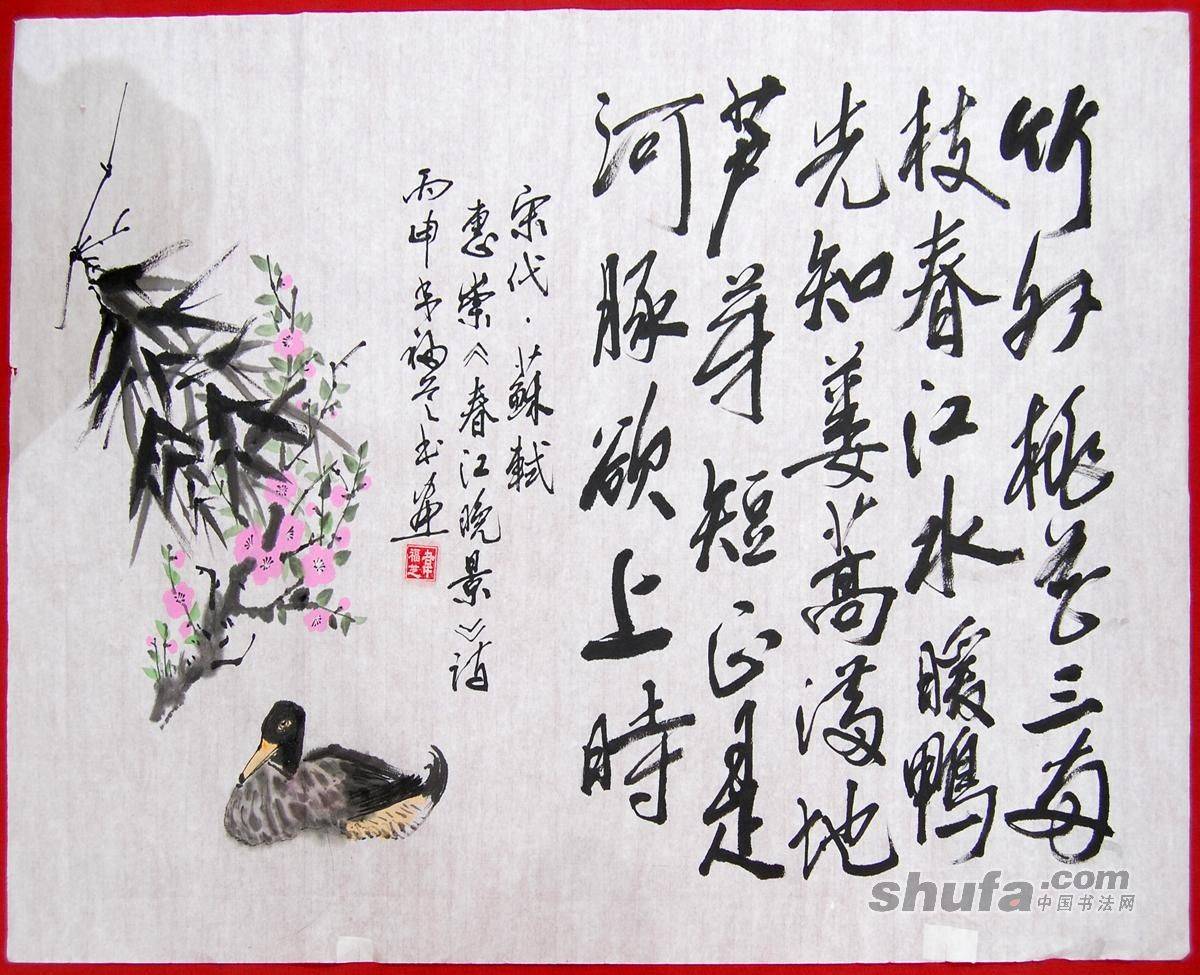 竹外桃花三两
枝春江水暖鴨
先知蒌蒿满地
芦芽短正是
河豚欲上時
宋代·蘇軾
惠崇《春江晚景》诗
丙申福芝书画
福芝
shufa.com
中国书法网